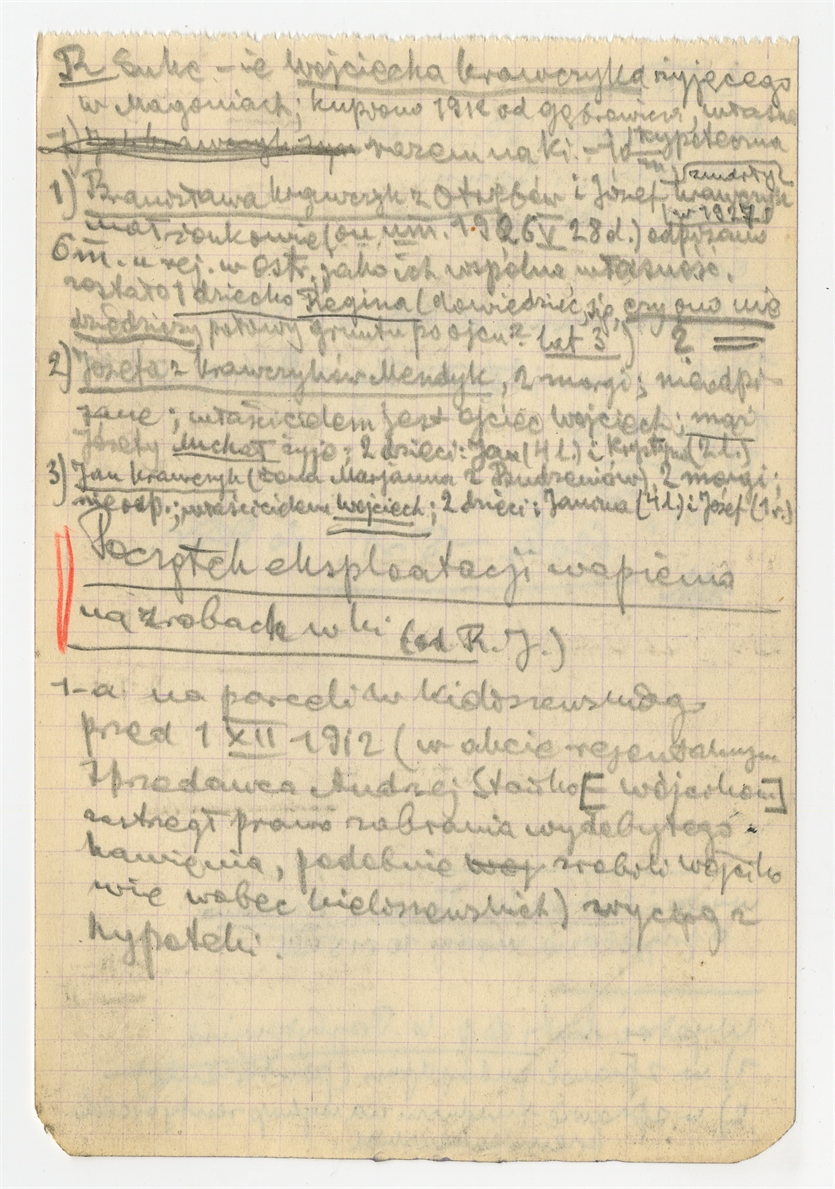 R Sukc-ie Wojciecha Krawczyka żyjącego
w Magoniach; kupiono 1912 od Gąsrowicza, własna
razem na ki. hypoteczna
1) Bronisława Krawczyk z Otrębów i Józef Krawczyk zmarły w 1927 r
małżonkowie (on um. 1926 V 28 d.) odpisano
6 m. u rej. w Ostr. jako ich wspólna własność.
zostało 1 dziecko Regina (dowiedzieć się, czy ono nie
dziedziczy połowy gruntu po ojcu? lat 3) 2
2) Józefa z Krawczyków Mendyk, 2 morgi; nieodpi-
sane; właścicielem jest ojciec Wojciech; mąż
Józefy Michał żyje; 2 dzieci: Jan (4 l.) i Krystyna (2 l.)
3) Jan Krawczyk (żona Marjanna z Budzeniów), 2 morgi;
nieodp.; właścicielem Wojciech; 2 dzieci: Janina (4 l.) i Józef (1 r.)
Początek eksploatacji wapienia
na zrobach w ki (od R. J.)
1-a na parceli W. Kidoszewskiego
przed 1 XII 1912 (w akcie rejentalnym
sprzedawca Andrzej Stańko [= Wójcikom]
zastrzegł prawo zabrania wydobytego
kamienia, podobnie zrobili Wójciko
wie wobec Kieloszewskich) wyciąg z
hypoteki.